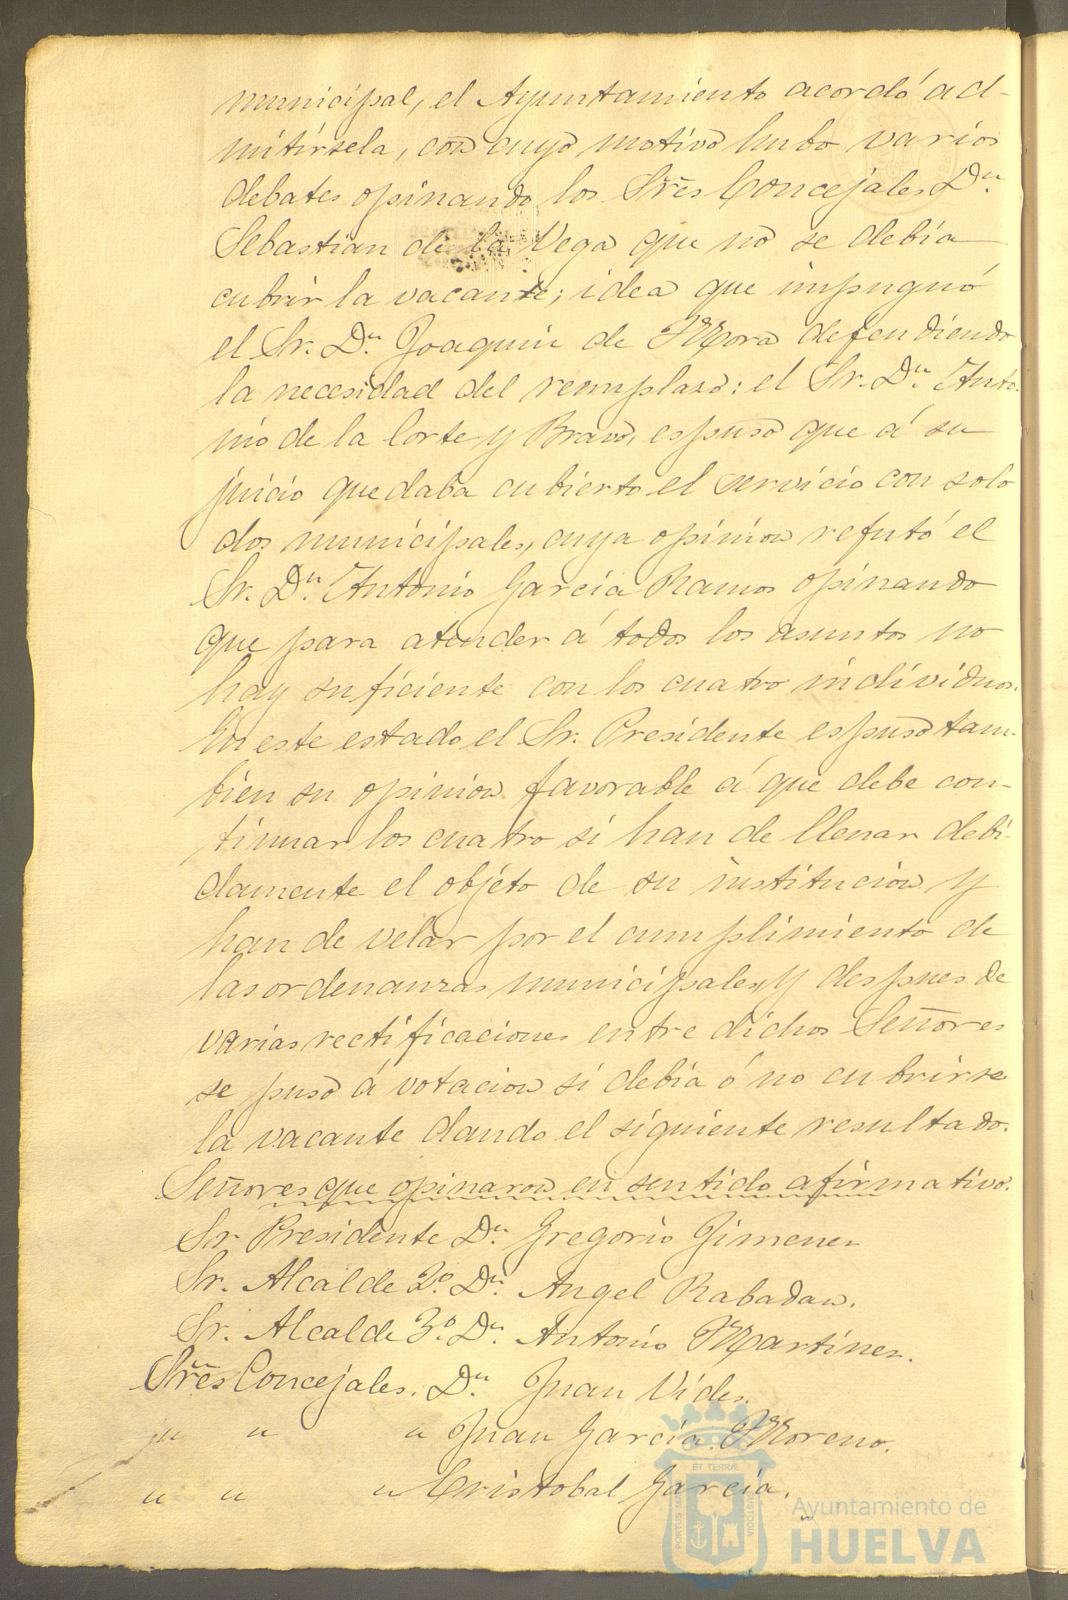 municipal, el Ayuntamiento acordó ad-
mitirsela, con cuyo motivo hubo varios
debates opinando los Sres Concejales Dn.
Sebastian de la Vega que no se debia
cubrir la vacante; idea que impugnó
el Sr. Dn. Joaquin de Mora defendiendo
la necesidad del remplazo: el Sr. Dn. Anto-
nio de la Corte y Bravo, espuso que á su
juicio quedaba cubierto el servicio con solo
dos municipales, cuya opinion refutó el
Sr. Dn. Antonio Garcia Ramos opinando
que para atender á todos los asuntos no
hay suficiente con los cuatro individuos.
En este estado el Sr. Presidente espuso tam-
bien su opinion favorable á que debe con-
tinuar los cuatro si han de llenar debi-
damente el objeto de su institucion y
han de velar por el cumplimiento de
las ordenanzas municipales, y despues de
varias rectificaciones entre dichos Señores
se puso á votacion si debia ó no cubrirse
la vacante dando el siguiente resultado.
Señores que opinaron en sentido afirmativo.
Sr Presidente Dn. Gregorio Jimenez
Sr. Alcalde 2º. Dn. Angel Rabadan.
Sr. Alcalde 3º. Dn. Antonio Martinez.
Sres Concejales. Dn. Juan Vides.
" " " Juan García Moreno.
" " " Cristobal García.
ET TERRÆ
PORTUS MARIS
CUSTODIA
Ayuntamiento de
HUELVA